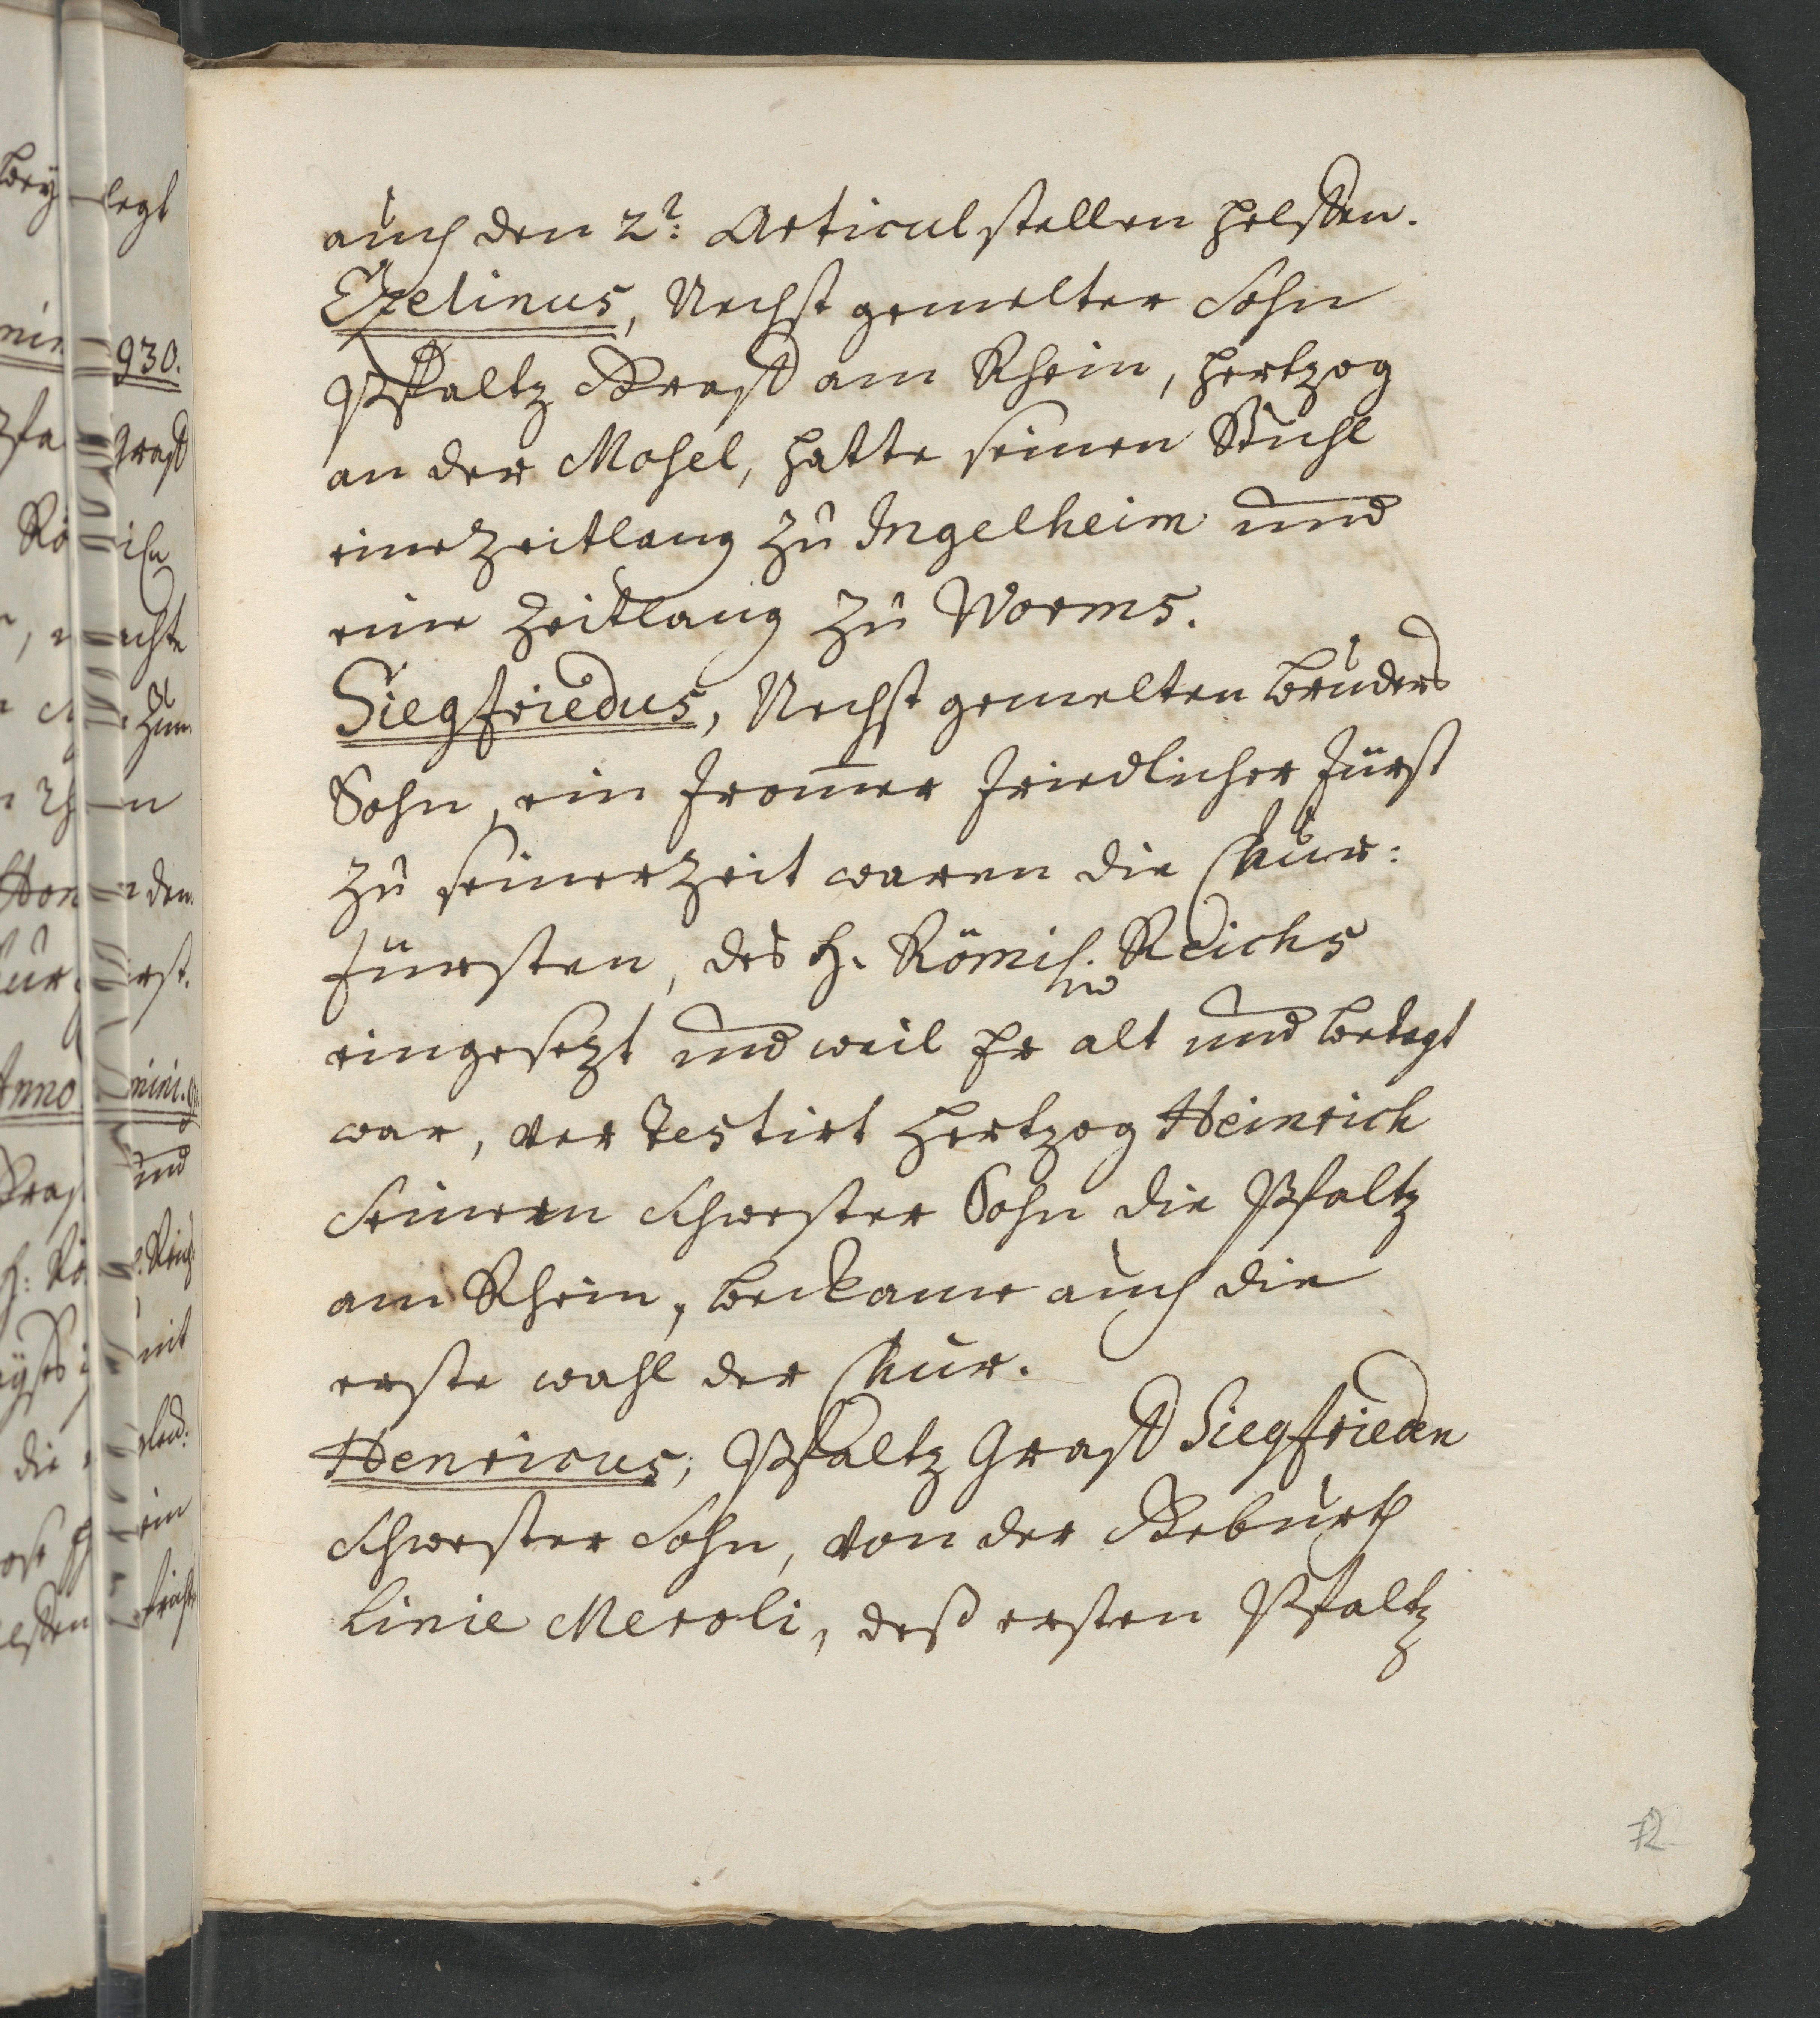 auch den 2?: Articul stellen helffen.
Ezelinus, Nechst gemelter Sohn
Pfaltz Graff am Rhein, Hertzog
an der Mosel, hatte seinen Stuhl
eine Zeitlang zu Ingelheim und
eine Zeitlang zu Worms.
Siegfriedus, Nechst gemelten Bruders
Sohn, ein From̅er Friedlicher Fürst
zu seiner Zeit waren die Chur:
Fürsten, des H. Römis. Reichs
eingesezt und weil Er alt und betagt
war, ver Testirt Hertzog Heinrich
Seinem Schwester Sohn die Pfaltz
am Rhein, bekame auch die
erste wahl der Chur.
Henricus, Pfaltz Graff Siegfrieden
Schwester Sohn, von der Geburth
Linie Meroli, deß ersten Pfaltz
72